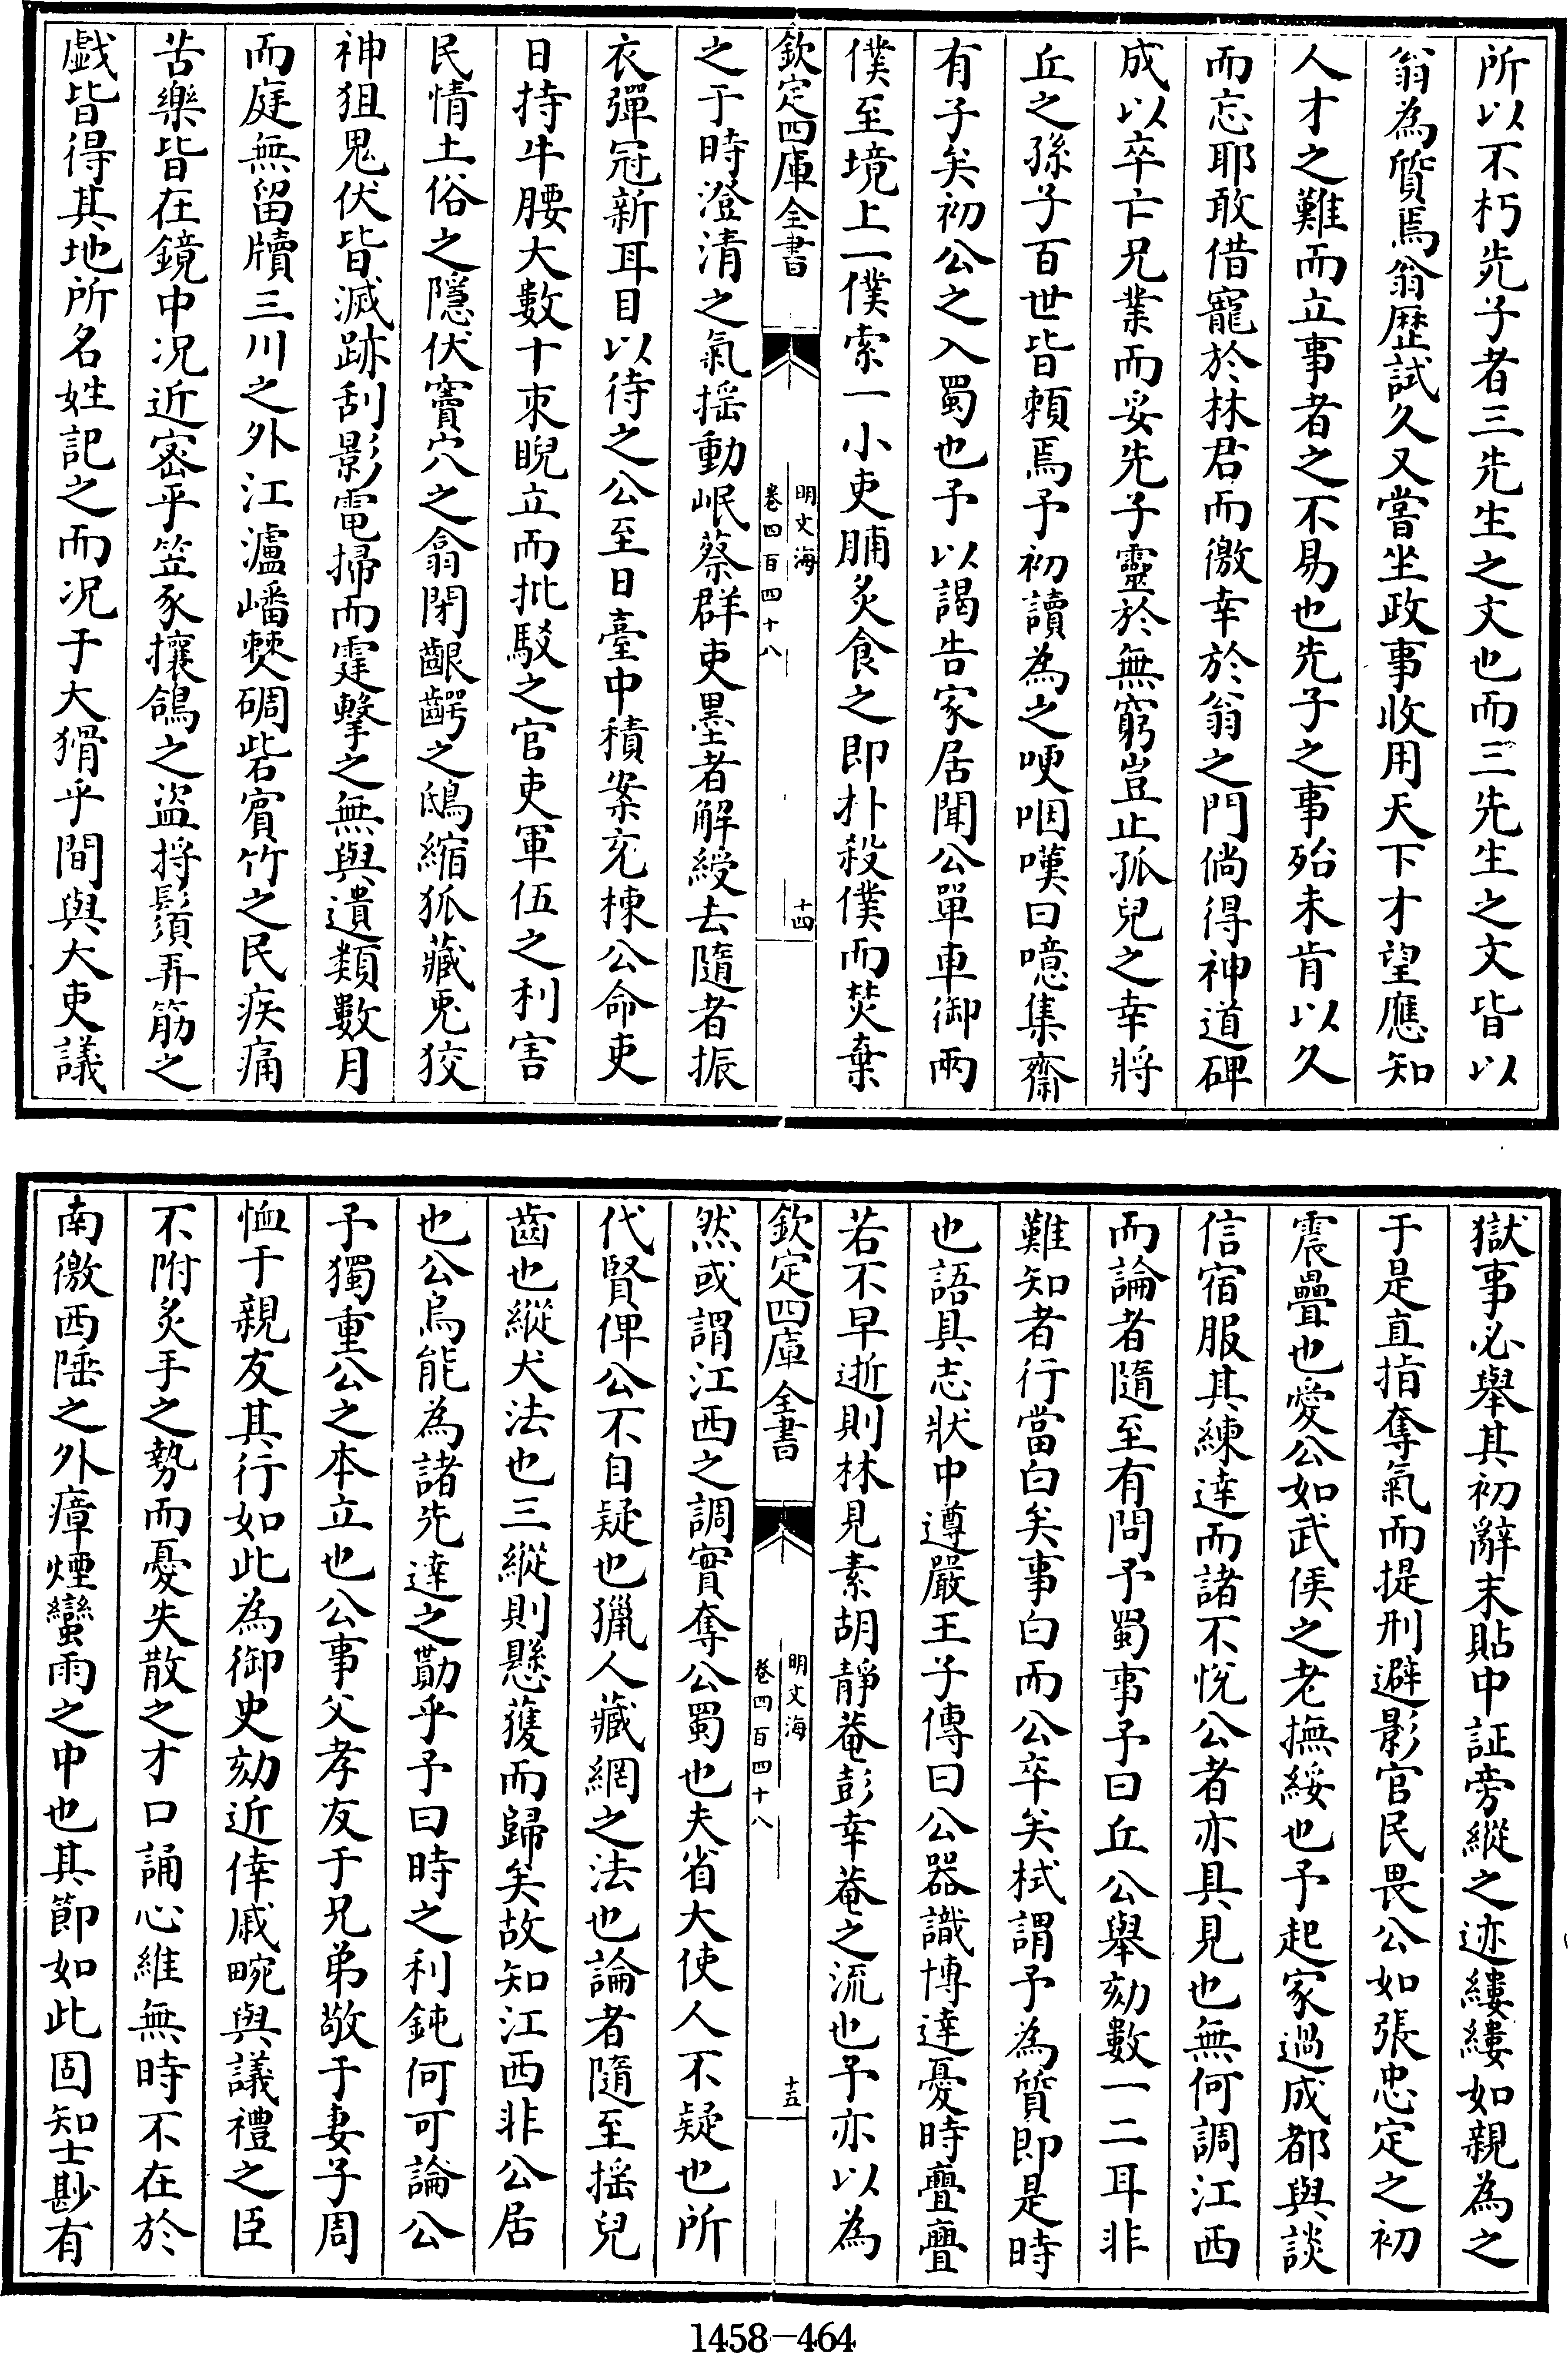 所以不朽先子者三先生之文也而三先生之文皆以
翁為質焉翁歴試久又嘗坐政事收用天下才望應知
人才之難而立事者之不易也先子之事殆未肯以久
而忘耶敢借寵於林君而徼幸於翁之門倘得神道碑
成以卒亡兄業而妥先子靈於無窮豈止孤兒之幸將
丘之孫子百世皆頼焉予初讀為之哽咽嘆曰噫集齋
有子矣初公之入蜀也予以謁告家居聞公單車御兩
僕至境上一僕索一小吏脯炙食之即朴殺僕而焚棄
欽定四庫全書
明文海
卷四百四十八
十四
之于時澄清之氣揺動岷蔡群吏墨者解綬去隨者振
衣彈冠新耳目以待之公至日臺中積案充棟公命吏
日持牛腰大數十束睨立而批駁之官吏軍伍之利害
民情土俗之隱伏竇穴之翕閉齦齶之鴟縮狐藏兎狡
神狙鬼伏皆滅跡刮影電掃而霆擊之無與遺類數月
而庭無留牘三川之外江瀘嶓僰碉砦賓竹之民疾痛
苦樂皆在鏡中况近密乎笠豕攘鴿之盜捋鬚弄筋之
戯皆得其地所名姓記之而况于大猾乎間與大吏議
獄事必舉其初辭末貼中証旁縱之迹縷縷如親為之
于是直指奪氣而提刑避影官民畏公如張忠定之初
震疊也愛公如武侯之老撫綏也予起家過成都與談
信宿服其練達而諸不悅公者亦具見也無何調江西
而論者隨至有問予蜀事予曰丘公舉劾數一二耳非
難知者行當白矣事白而公卒矣栻謂予為質即是時
也語具志狀中遵嚴王子傳曰公器識博達憂時亹亹
若不早逝則林見素胡靜菴彭幸菴之流也予亦以為
欽定四庫全書
明文海
卷四百四十八
十五
然或謂江西之調實奪公蜀也夫省大使人不疑也所
代賢俾公不自疑也獵人藏網之法也論者隨至揺兒
齒也縱犬法也三縱則懸蒦而歸矣故知江西非公居
也公烏能為諸先達之勩乎予曰時之利鈍何可論公
予獨重公之本立也公事父孝友于兄弟敬于妻子周
恤于親友其行如此為御史劾近倖戚畹與議禮之臣
不附炙手之勢而憂失散之才口誦心維無時不在於
南徼西陲之外瘴煙蠻雨之中也其節如此固知士尠有
1458-464